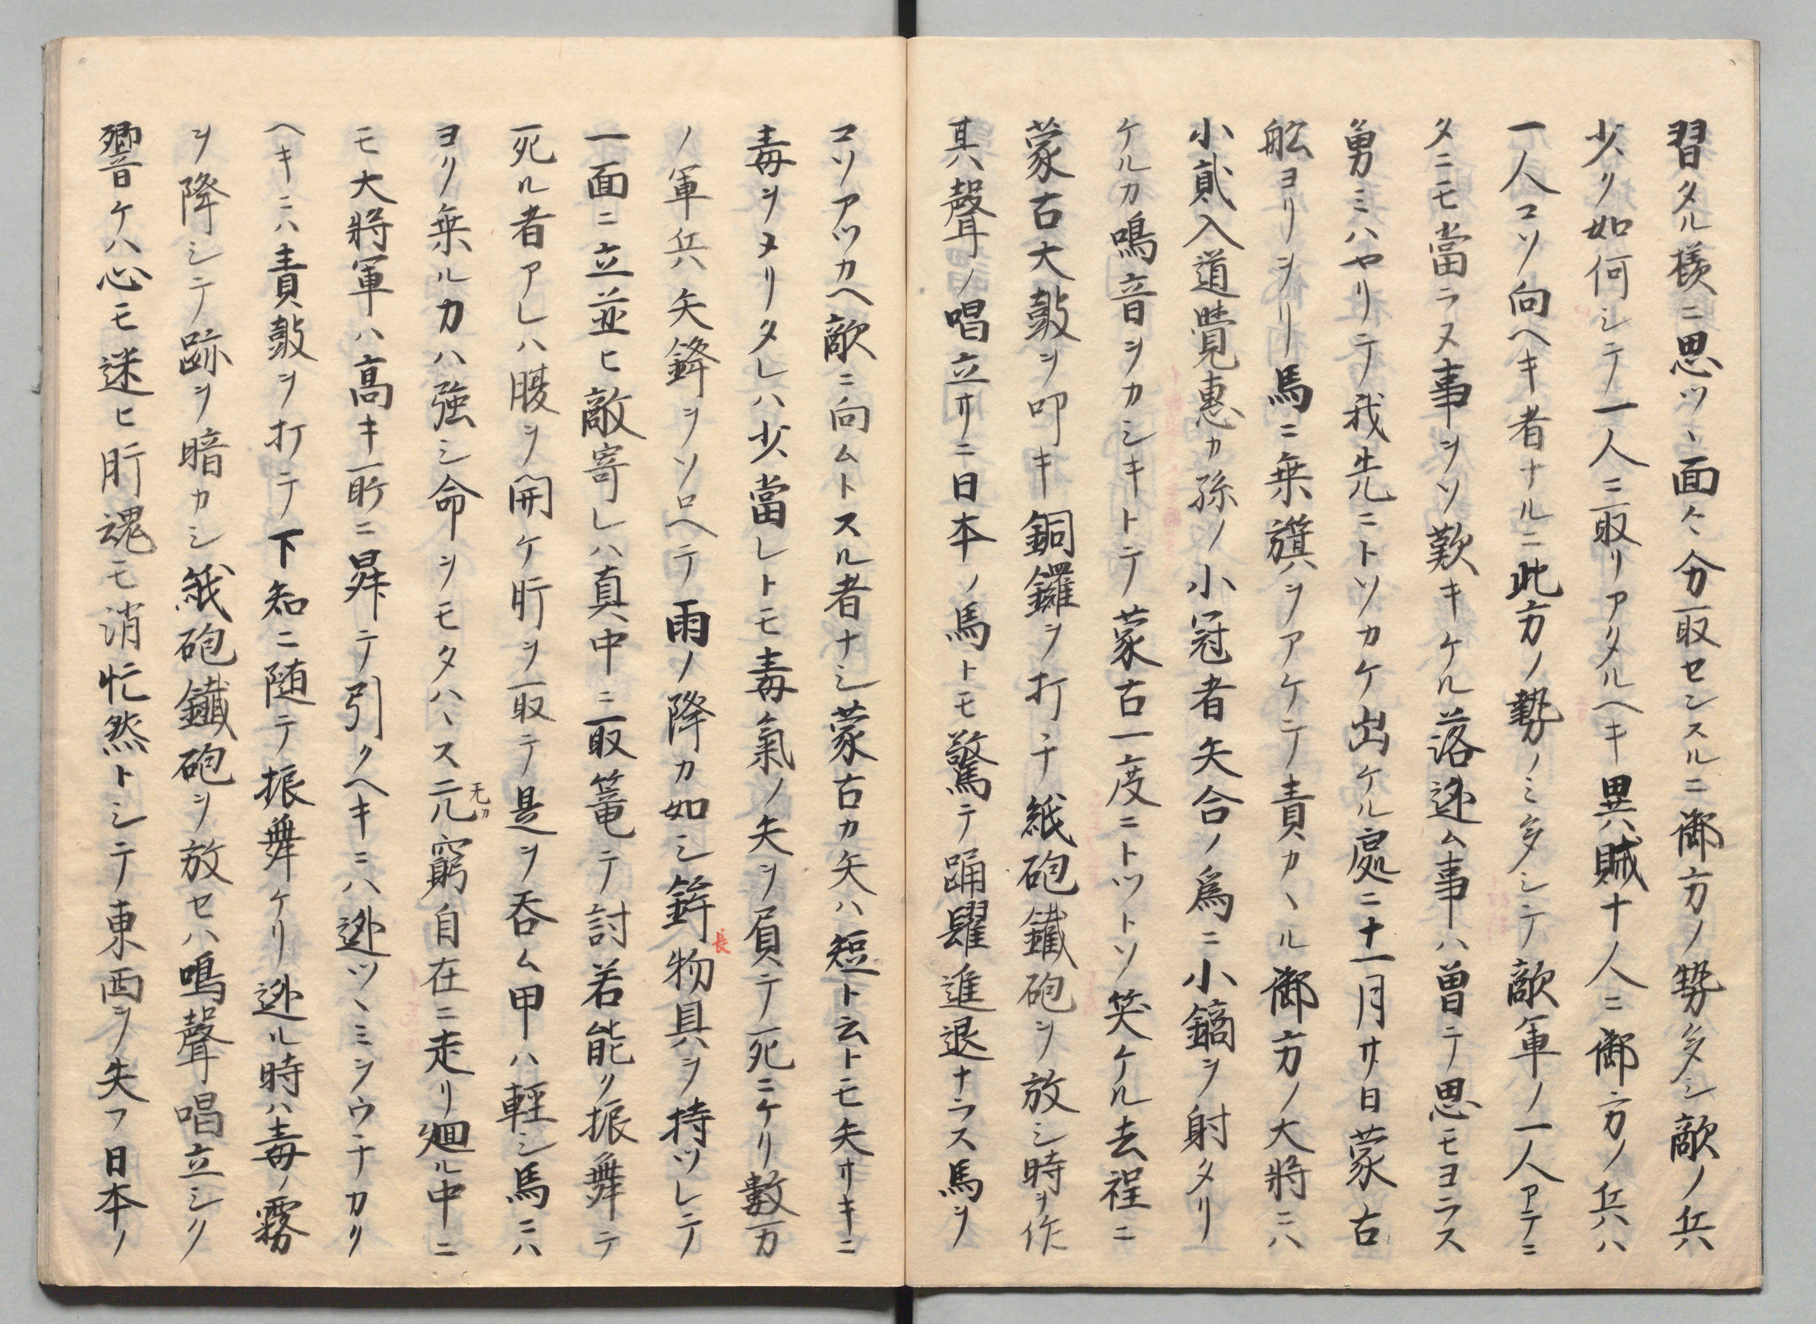 習タル様ニ思ツヽ面々分取センスルニ御方ノ勢多シ敵ノ兵
少ク如何シテ一人ニ取リアタルヘキ異賊十人ニ御方ノ兵ハ
一人コソ向ヘキ者ナルニ此方ノ勢ノミ多シテ敵軍ノ一人アテニ
タニモ當ラヌ事ヲソ歎キケル落逃ム事ハ曽テ思モヨラス
勇ミハヤリテ我先ニトソカケ出ケル處ニ十一月廿日蒙古
舩ヨリヲリ馬ニ乗旗ヲアケテ責カヽル御方ノ大將ニハ
小貳入道覺惠カ孫ノ小冠者矢合ノ為ニ小鏑ヲ射タリ
ケルカ鳴音ヲカシキトテ蒙古一度ニトツトソ笑ケル去程ニ
蒙古大皷ヲ叩キ銅鑼ヲ打チ紙砲鐵砲ヲ放シ時ヲ作
其聲ノ唱立サニ日本ノ馬トモ驚テ踊躍進退ナラス馬ヲ
コソアツカヘ敵ニ向ムトスル者ナシ蒙古カ矢ハ短ト云トモ矢サキニ
毒ヲヌリタレハ少當レトモ毒氣ノ矢ヲ屓テ死ニケリ數万
ノ軍兵矢鋒ヲソロヘテ雨ノ降カ如シ鉾長物具ヲ持ツレテ
一面ニ立並ヒ敵寄レハ真中ニ取篭テ討若能ク振舞テ
死ル者アレハ腹ヲ開ケ肝ヲ取テ是ヲ呑ム甲ハ輕シ馬ニハ
ヨク乗ルカハ強シ命ヲモタハヽス二儿无カ窮自在ニ走リ廻ル中ニ
モ大將軍ハ高キ所ニ昇テ引クヘキニハ逃ツヽミヲウチカク
ヘキニハ責皷ヲ打テ下知ニ随テ振舞ケリ逃ル時ハ毒ノ霧
ヲ降シテ跡ヲ暗カシ紙砲鐵砲ヲ放セハ鳴聲唱立シク
響ケハ心モ迷ヒ肝魂モ消忙然トシテ東西ヲ失フ日本ノ